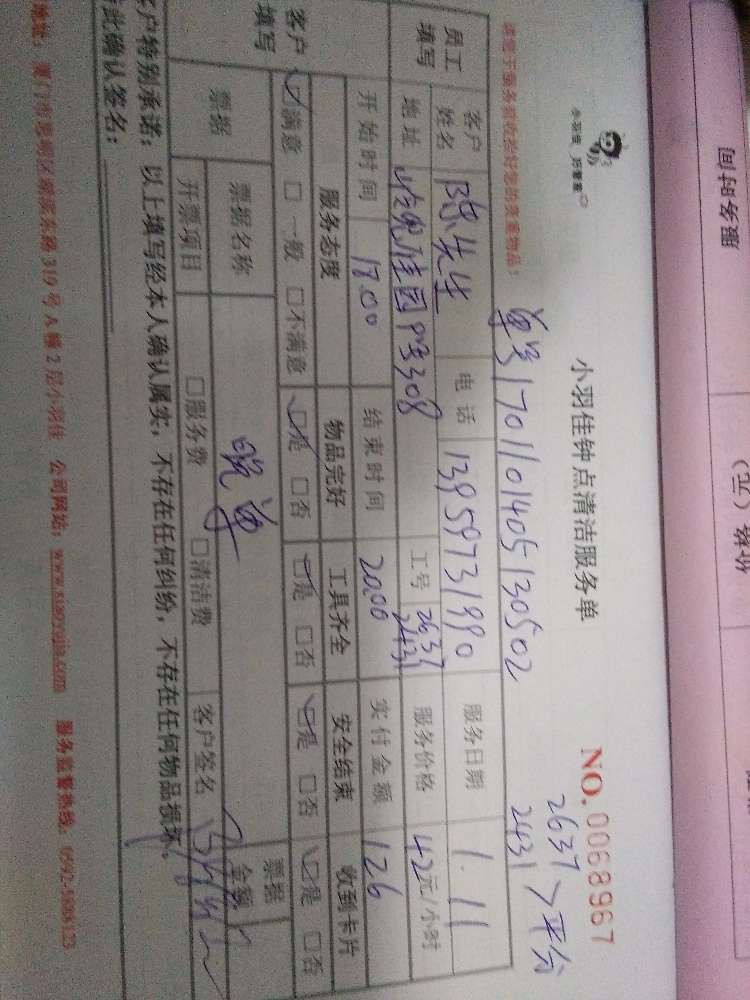 小羽佳钟点清洁服务单
NO.0068967
2637
2431 平分
单号170110140513050​2
请您于服务前收拾好您的贵重物品：
员工填写
客户姓名 陈先生 电话 13959731990 服务日期 1.11
地址 工号 2637 2431 服务价格 42元/小时
开始时间 18.00 结束时间 20.00 实付金额 126
客户填写
服务态度 物品完好 工具齐全 安全结束 收到卡片
☑满意 □一般 □不满意 ☑是 □否 ☑是 □否 ☑是 □否 ☑是 □否
票据 票据名称 晚单 票据金额
开票项目 □服务费 □清洁费 客户签名
客户特别承诺：以上填写经本人确认属实，不存在任何纠纷，不存在任何物品损坏。
此确认签名：
319号A幢2层小羽佳 公司网站： 服务监督热线：
服务时间
价格（元）